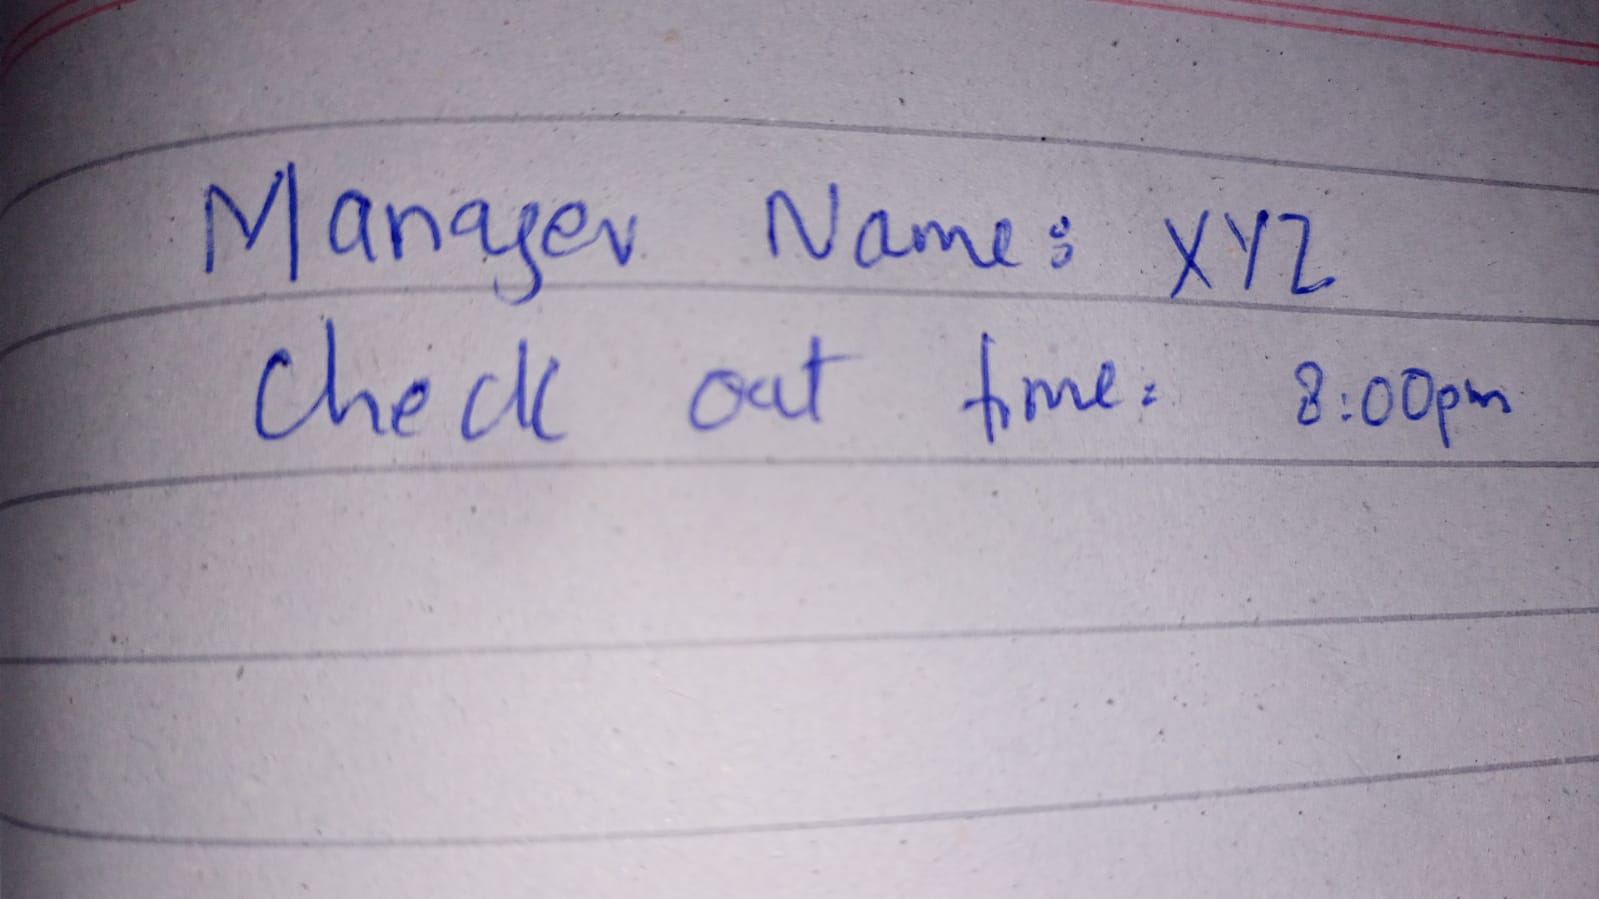 Manager Name: XYZ
Check out time: 8:00pm